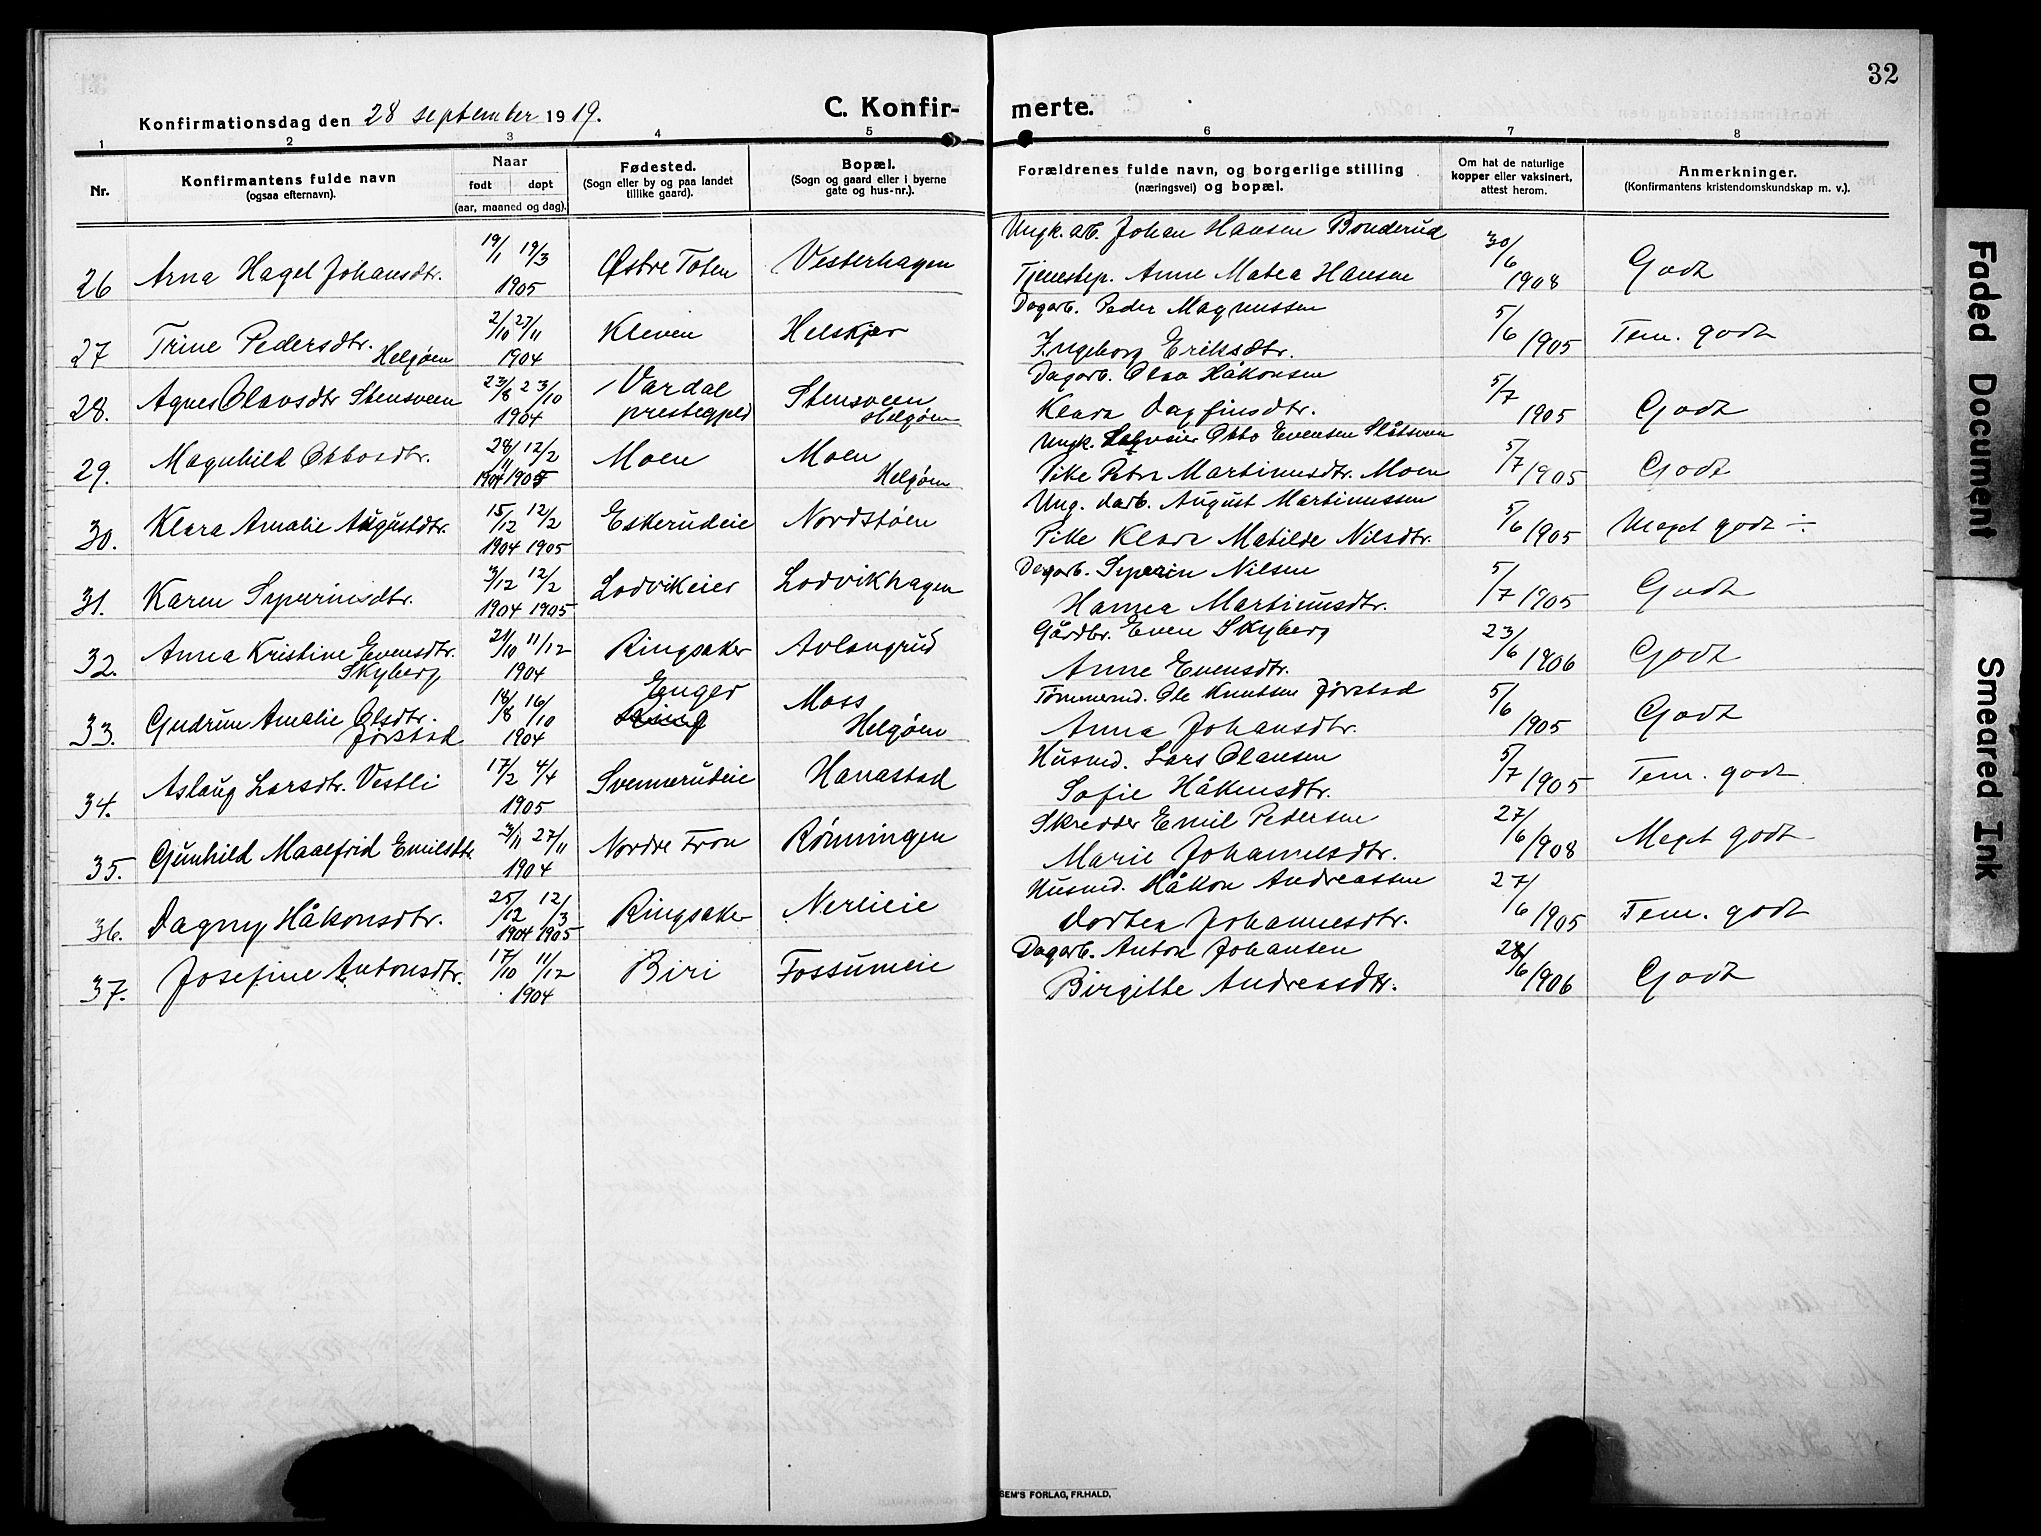 32
Konfirmationsdag den 28 september 1919.
C. Konfirmerte.
1 2 3 4 5 6 7 8
Nr.
Konfirmantens fulde navn
(ogsaa efternavn).
Naar
født døpt
(aar, maaned og dag).
Fødested.
(Sogn eller by og paa landet
tillike gaard).
Bopæl.
(Sogn og gaard eller i byerne
gate og hus-nr.).
Forældrenes fulde navn, og borgerlige stilling
(næringsvei) og bopæl.
Om hat de naturlige
kopper eller vaksinert,
attest herom.
Anmerkninger.
(Konfirmantens kristendomskundskap m. v.).
26 Arna Hagel Johansdtr. 19/1 19/3 1905 Østre Toten Vesterhagen Ungk. arb. Johan Hansen Bonderud
Tjenestep. Anne Matea Hansen 30/6 1908 Godt
27 Trine Pedersdtr. Helgøen 2/10 27/11 1904 Kleven Helskjær Dagarb. Peder Magnussen
Ingeborg Eriksdtr. 5/6 1905 Tem. godt
28. Agnes Olavsdtr Stensveen 23/8 23/10 1904 Vardal prestegjeld Stensveen Helgøen Dagarb. Olav Håkonsen
Klara Dagfinsdtr. 5/7 1905 Godt
29. Magnhild Ottosdtr. 28/11 1904 12/2 1905 Moen Moen Helgøen Ungk. Otto Evensen
Pike Petra Martinusdtr. Moen 5/7 1905 Godt
30. Klara Amalie Augustdtr. 15/12 1904 12/2 1905 Eskerudeie Nordstøen Ung. darb. August Martinussen
Pike Klara Matilde Nilsdtr. 5/6 1905 Meget godt ÷
31. Karen Syverinsdtr. 3/12 1904 12/2 1905 Lodvikeier Lodvikhagen Dagarb. Syverin Nilsen
Hanna Martinusdtr. 5/7 1905 Godt
32. Anna Kristine Evensdtr. Skyberg 21/10 11/12 1904 Ringsaker Avlangrud Gårdbr. Even Skyberg
Anne Evensdtr. 23/6 1906 Godt
33. Gudrun Amalie Olsdtr. Jørstad 18/8 16/10 1904 Enger Moss Helgøen Tømmermd. Ole Knutsen Jørstad
Anna Johansdtr. 5/6 1905 Godt
34. Aslaug Larsdtr. Vestli 17/2 4/4 1905 Svennerudeie Hanastad Husmd. Lars Olausen
Sofie Håkensdtr. 5/7 1905 Tem. godt
35. Gunhild Maalfrid Emilsdtr 3/11 27/11 1904 Nordre Fron Rønningen Skredder Emil Pedersen
Marie Johannesdtr. 27/6 1908 Meget godt
36. Dagny Håkonsdtr. 25/12 1904 12/3 1905 Ringsaker Nereieie Husmd. Håkon Andreassen
Dortea Johannesdtr. 27/6 1905 Tem. godt
37. Josefine Antonsdtr. 17/10 11/12 1904 Biri Fossumeie Dagarb. Anton Johansen
Birgitte Andreasdtr. 28/6 1906 Godt
SEM'S FORLAG, FR.HALD.
Faded Document
Smeared Ink